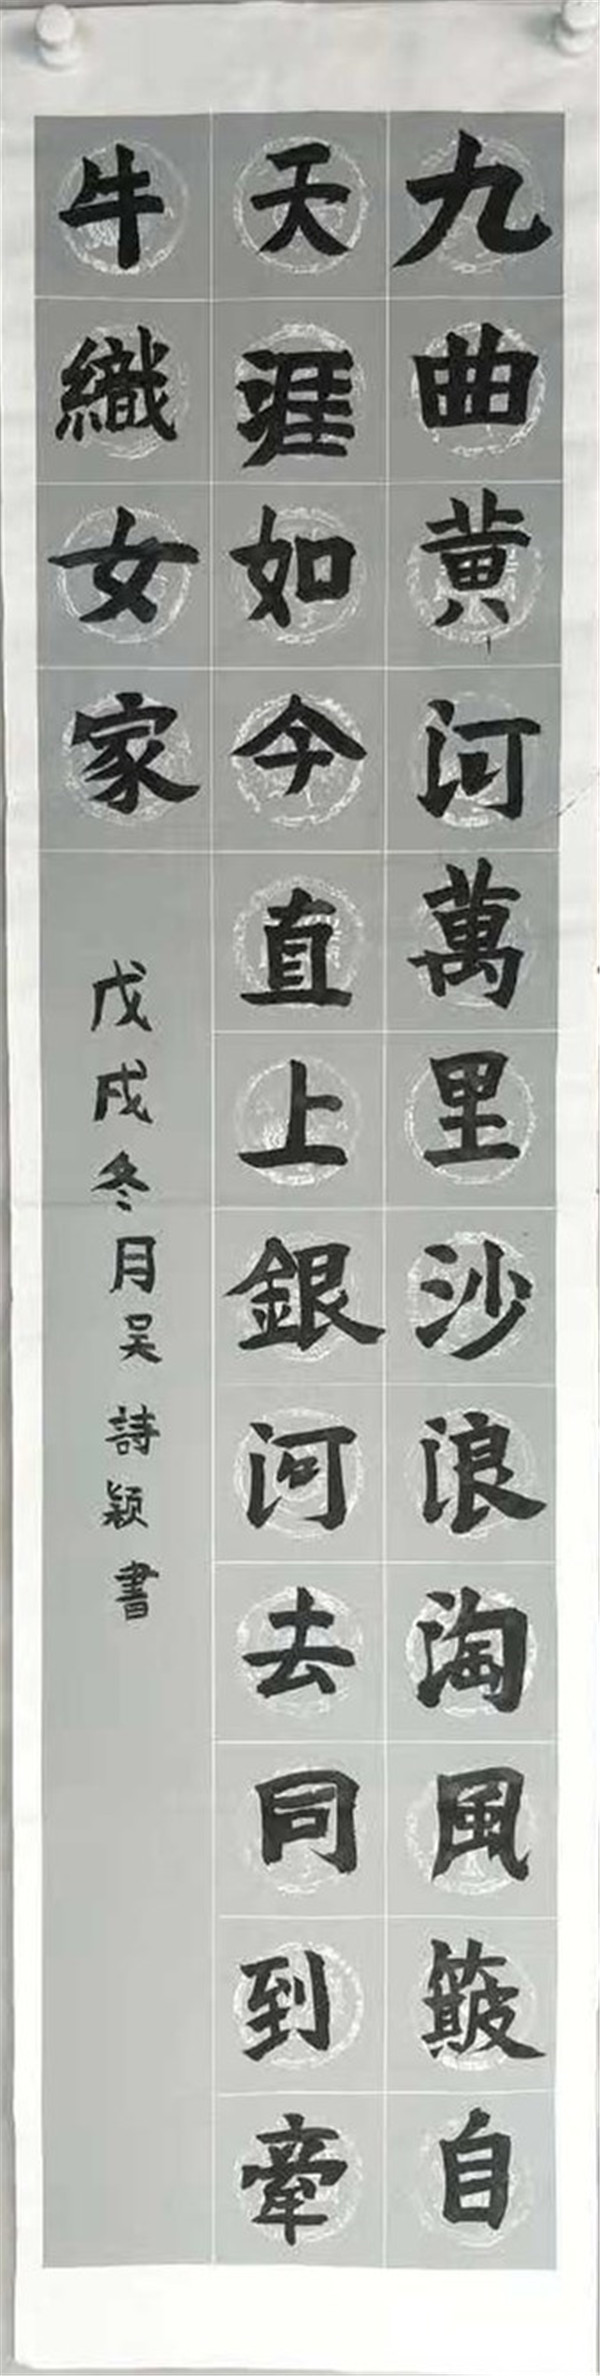 九曲黄河萬里沙浪淘風簸自
天涯如今直上銀河去同到牽
牛織女家
戊戌冬月吴詩颖書